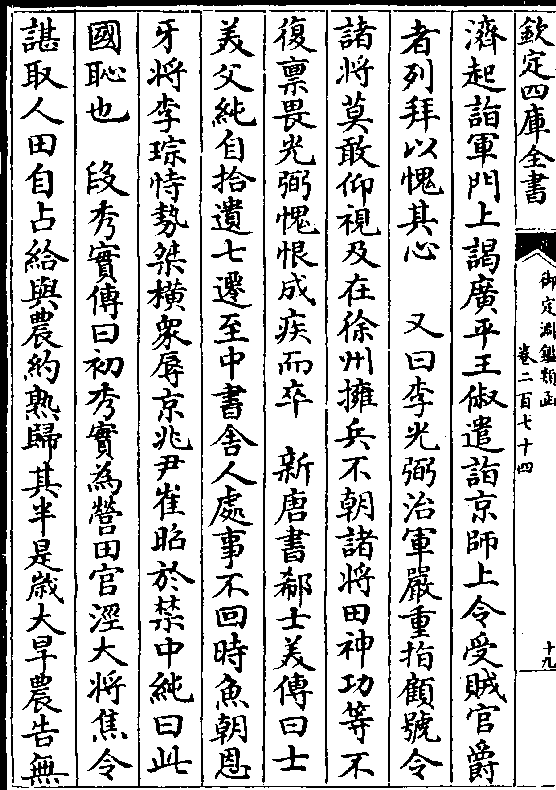 欽定四庫全書
御定淵鑑類函
卷二百七十四
十九
濟起詣軍門上謁廣平王俶遣詣京師上令受賊官爵
者列拜以愧其心　又曰李光弼治軍嚴重指顧號令
諸將莫敢仰視及在徐州擁兵不朝諸將田神功等不
復稟畏光弼愧恨成疾而卒　新唐書郗士美傳曰士
美父純自拾遺七遷至中書舍人處事不回時魚朝恩
牙將李琮恃勢桀橫衆辱京兆尹崔昭於禁中純曰此
國恥也　段秀實傳曰初秀實為營田官涇大將焦令
諶取人田自占給與農約熟歸其半是歲大旱農告無